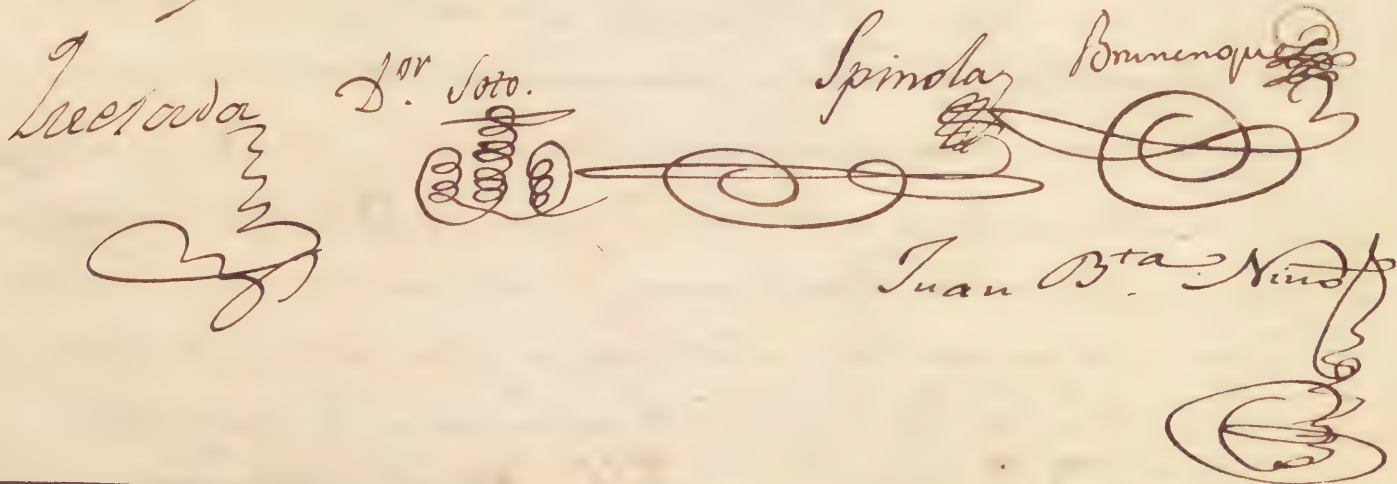 D.ᵒʳ Soto. Spinola Brunenque
Juan B.ᵗᵃ Nino